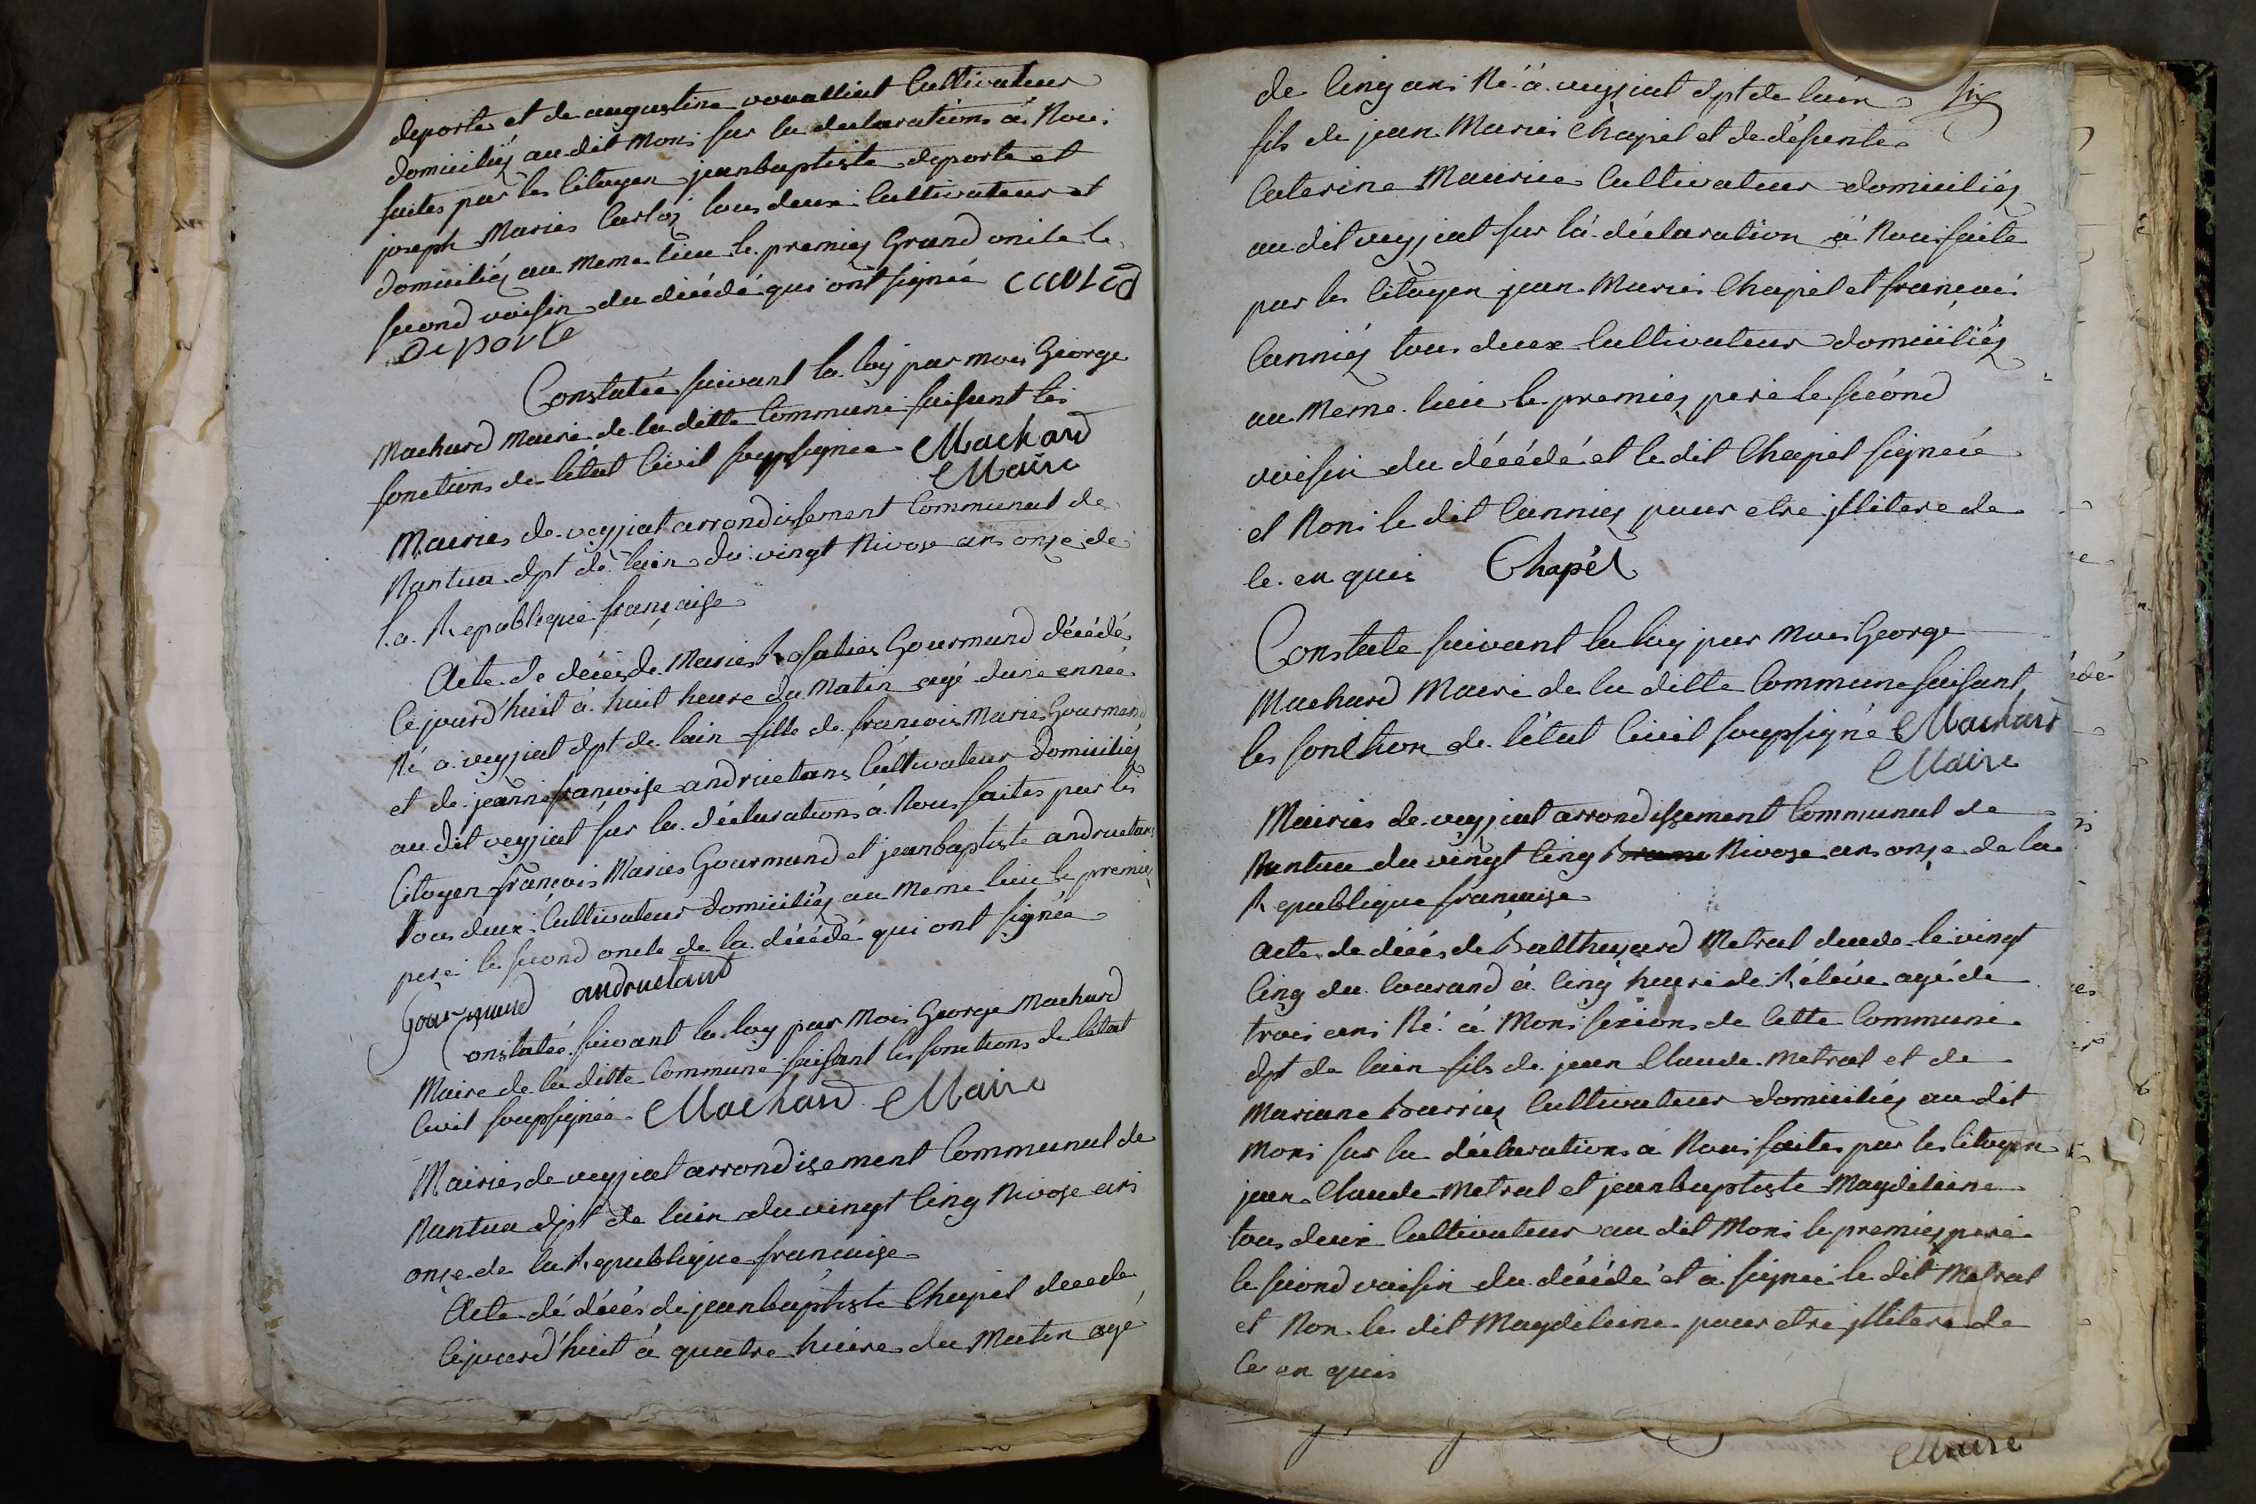 deporte et de augustine vouattiat Cultivateur
domiciliéz au dit Moni sur la declarations à Nous
faites par les Citoyen jeanbaptiste deporte et
joseph Maries Carloz tous deux Cultivateur et
domiciliéz au meme lieu le premiez Grand oncle le
second voisin du décédé qui ont signée
Deporte
Constatée suivant la loy par mois George
Machard Maire de la ditte Commune faisant les
fonctions de létat Civil soupsignée Machard
Maire
Mairies de veyziat arrondissement Communal de
Nantua dpt de lain du vingt Nivose ans onze de
la Republique française
Acte de décès de Maries Rosalies Gourmand décédé
Cejourd'huit à huit heure du Matin agé dune année
Né a veyziat dpt de lain fille de francois Maries Gourmand
et de jeanne francoise andruetans Cultivateur Domiciliéz
au dit veyziat sur la déclarations à Nous faites par les
Citoyen françois Maries Gourmand et jeanbaptiste andruetans
tous deux Cultivateur Domiciliéz au meme lieu le premiez
pere le second oncle de la décédé qui ont signée
Gourmand andruetant
Constatée suivant la loy par Mois George Machard
Maire de la ditte Commune faisant les fonctions de létat
Civil soupsignée Machard Maire
Mairies de veyziat arrondisement Communal de
Nantua dpt de lain du vingt Cinq Nivose ans
onze de la Republique francaise
Acte dé décés de jeanbaptiste Chapel decede
Cejourd'huit à quatre heure du Matin agé
de Cinq ans Né à veyziat dpt de lain six
fils de jean Maries Chapel et de défunte
Caterine Maurice Cultivateur domiciliéz
au dit veyziat sur la déclaration à Nous faite
par les Citoyen jean Maries Chapel et francois
Canniez tous deux Cultivateur domiciliéz
au Meme lieu le premiez pere le sécond
voisin du décédé et le dit Chapel signéé
et Non le dit Canniez pour etre jllitere de
Ce en quis Chapel
Constate suivant la loy par Mois George
Machard Maire de la ditte Commune faisant
les fonction de létat Civil soupsigné Machard
Maire
Mairies de veyziat arrondissement Communal de
Nantua du vingt Cinq Nivose ans onze de la
Republique francaise
Acte de décés de Balthazard Metral decede le vingt
Cinq du Courand à Cinq heure de Rélévé agé de
trois ans Né à Moni sexions de Cette Commune
dpt de lain fils de jean Claude Metral et de
Mariane Barriez Cultivateur domiciliéz au dit
Moni sur la déclarations à Nous faites par les Citoyen
jean Claude Metral et jeanbaptiste Magdeleine
tous deux Cultivateur au dit Moni le premiez pere
le second voisin du décédé et à signeé le dit Metral
et Non le dit Magdeleine pour etre jllitere de
Ce en quis
Maire